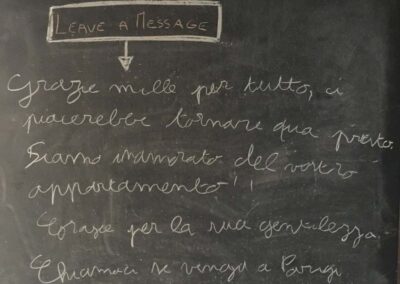 LEAVE A MESSAGE
Grazie mille per tutto, ci
piacerebbe tornare qua presto.
Siamo inamorato del vostro
appartamento!
Grazie per la sua gentilezza.
Chiamaci se venga a Parigi